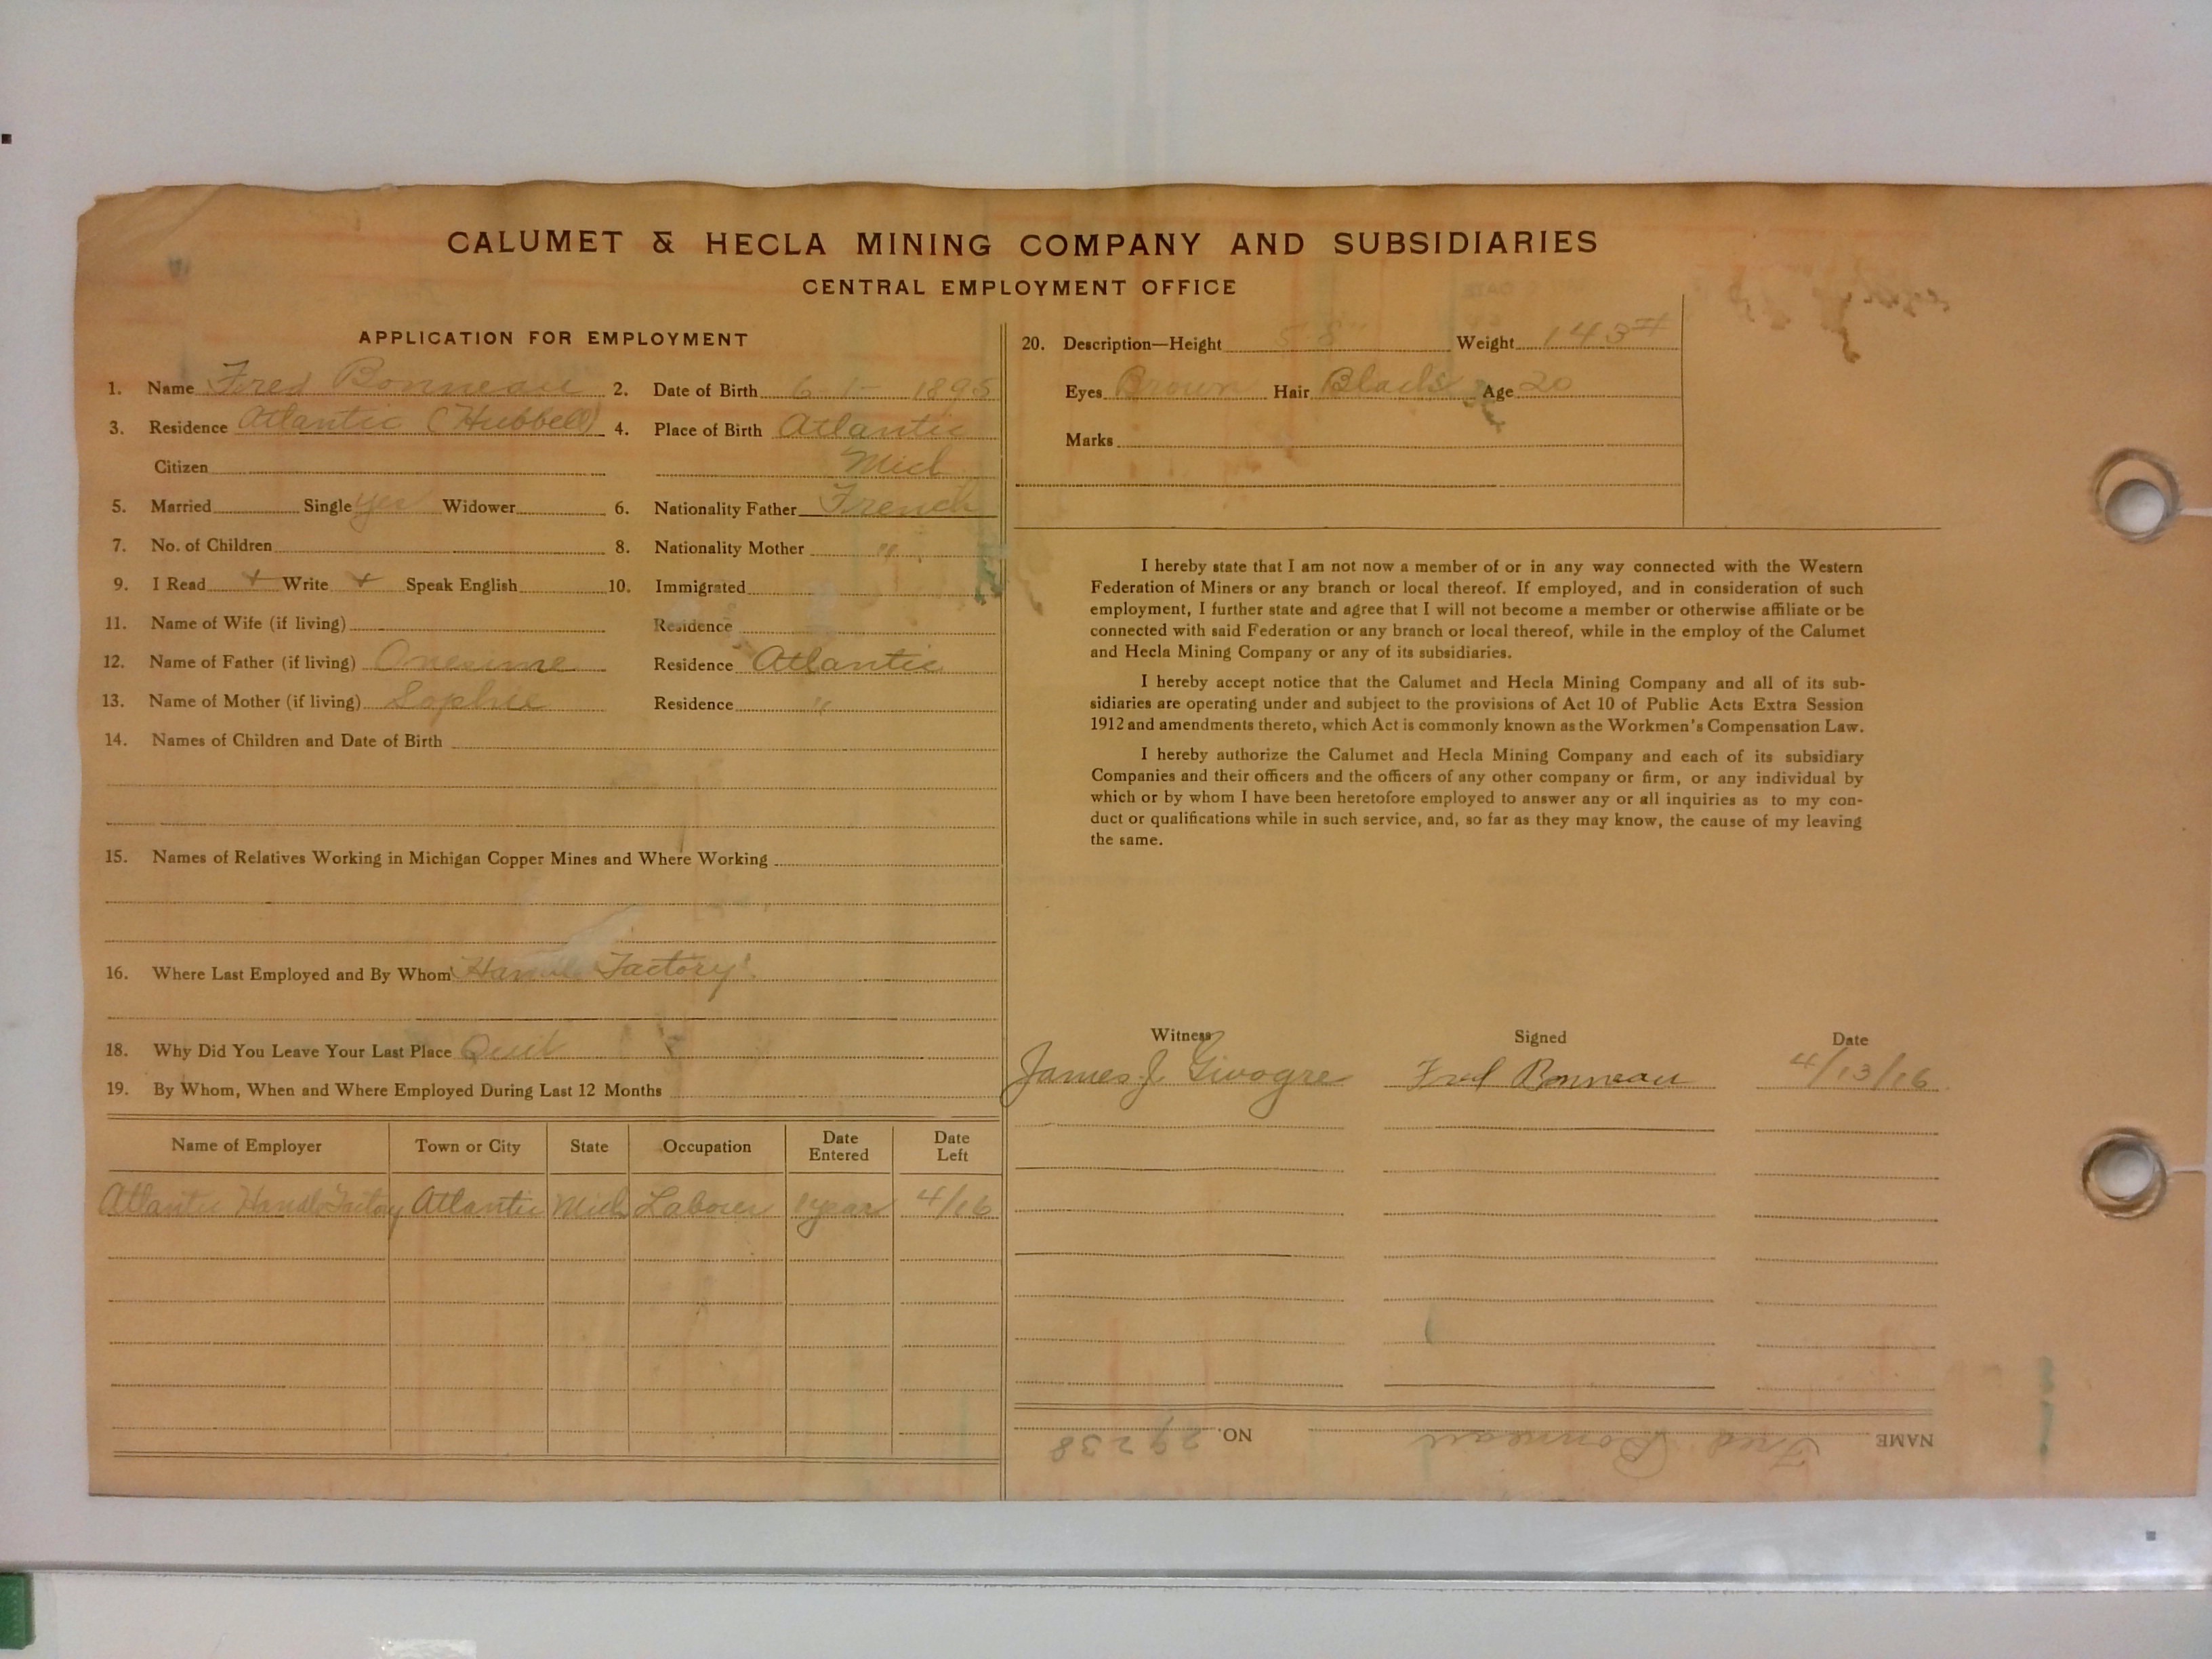 CALUMET & HECLA MINING COMPANY AND SUBSIDIARIES
CENTRAL EMPLOYMENT OFFICE
APPLICATION FOR EMPLOYMENT
1. Name Fred Bonneau 2. Date of Birth 6 1 - 1895
3. Residence Atlantic (Hubbell) 4. Place of Birth Atlantic
Citizen Mich
5. Married Single yes Widower 6. Nationality Father French
7. No. of Children 8. Nationality Mother "
9. I Read + Write + Speak English 10. Immigrated
11. Name of Wife (if living) Residence
12. Name of Father (if living) Onesime Residence Atlantic
13. Name of Mother (if living) Sophie Residence "
14. Names of Children and Date of Birth
15. Names of Relatives Working in Michigan Copper Mines and Where Working
16. Where Last Employed and By Whom Handle Factory
18. Why Did You Leave Your Last Place Quit
19. By Whom, When and Where Employed During Last 12 Months
Name of Employer Town or City State Occupation Date Entered Date Left
Atlantic Handle Factory Atlantic Mich Laborer 1 year 4/16
20. Description—Height 5-8" Weight 143#
Eyes Brown Hair Black Age 20
Marks
I hereby state that I am not now a member of or in any way connected with the Western
Federation of Miners or any branch or local thereof. If employed, and in consideration of such
employment, I further state and agree that I will not become a member or otherwise affiliate or be
connected with said Federation or any branch or local thereof, while in the employ of the Calumet
and Hecla Mining Company or any of its subsidiaries.
I hereby accept notice that the Calumet and Hecla Mining Company and all of its sub-
sidiaries are operating under and subject to the provisions of Act 10 of Public Acts Extra Session
1912 and amendments thereto, which Act is commonly known as the Workmen's Compensation Law.
I hereby authorize the Calumet and Hecla Mining Company and each of its subsidiary
Companies and their officers and the officers of any other company or firm, or any individual by
which or by whom I have been heretofore employed to answer any or all inquiries as to my con-
duct or qualifications while in such service, and, so far as they may know, the cause of my leaving
the same.
Witness Signed Date
James J. Givogre Fred Bonneau 4/13/16
NAME Fred Bonneau NO. 29238